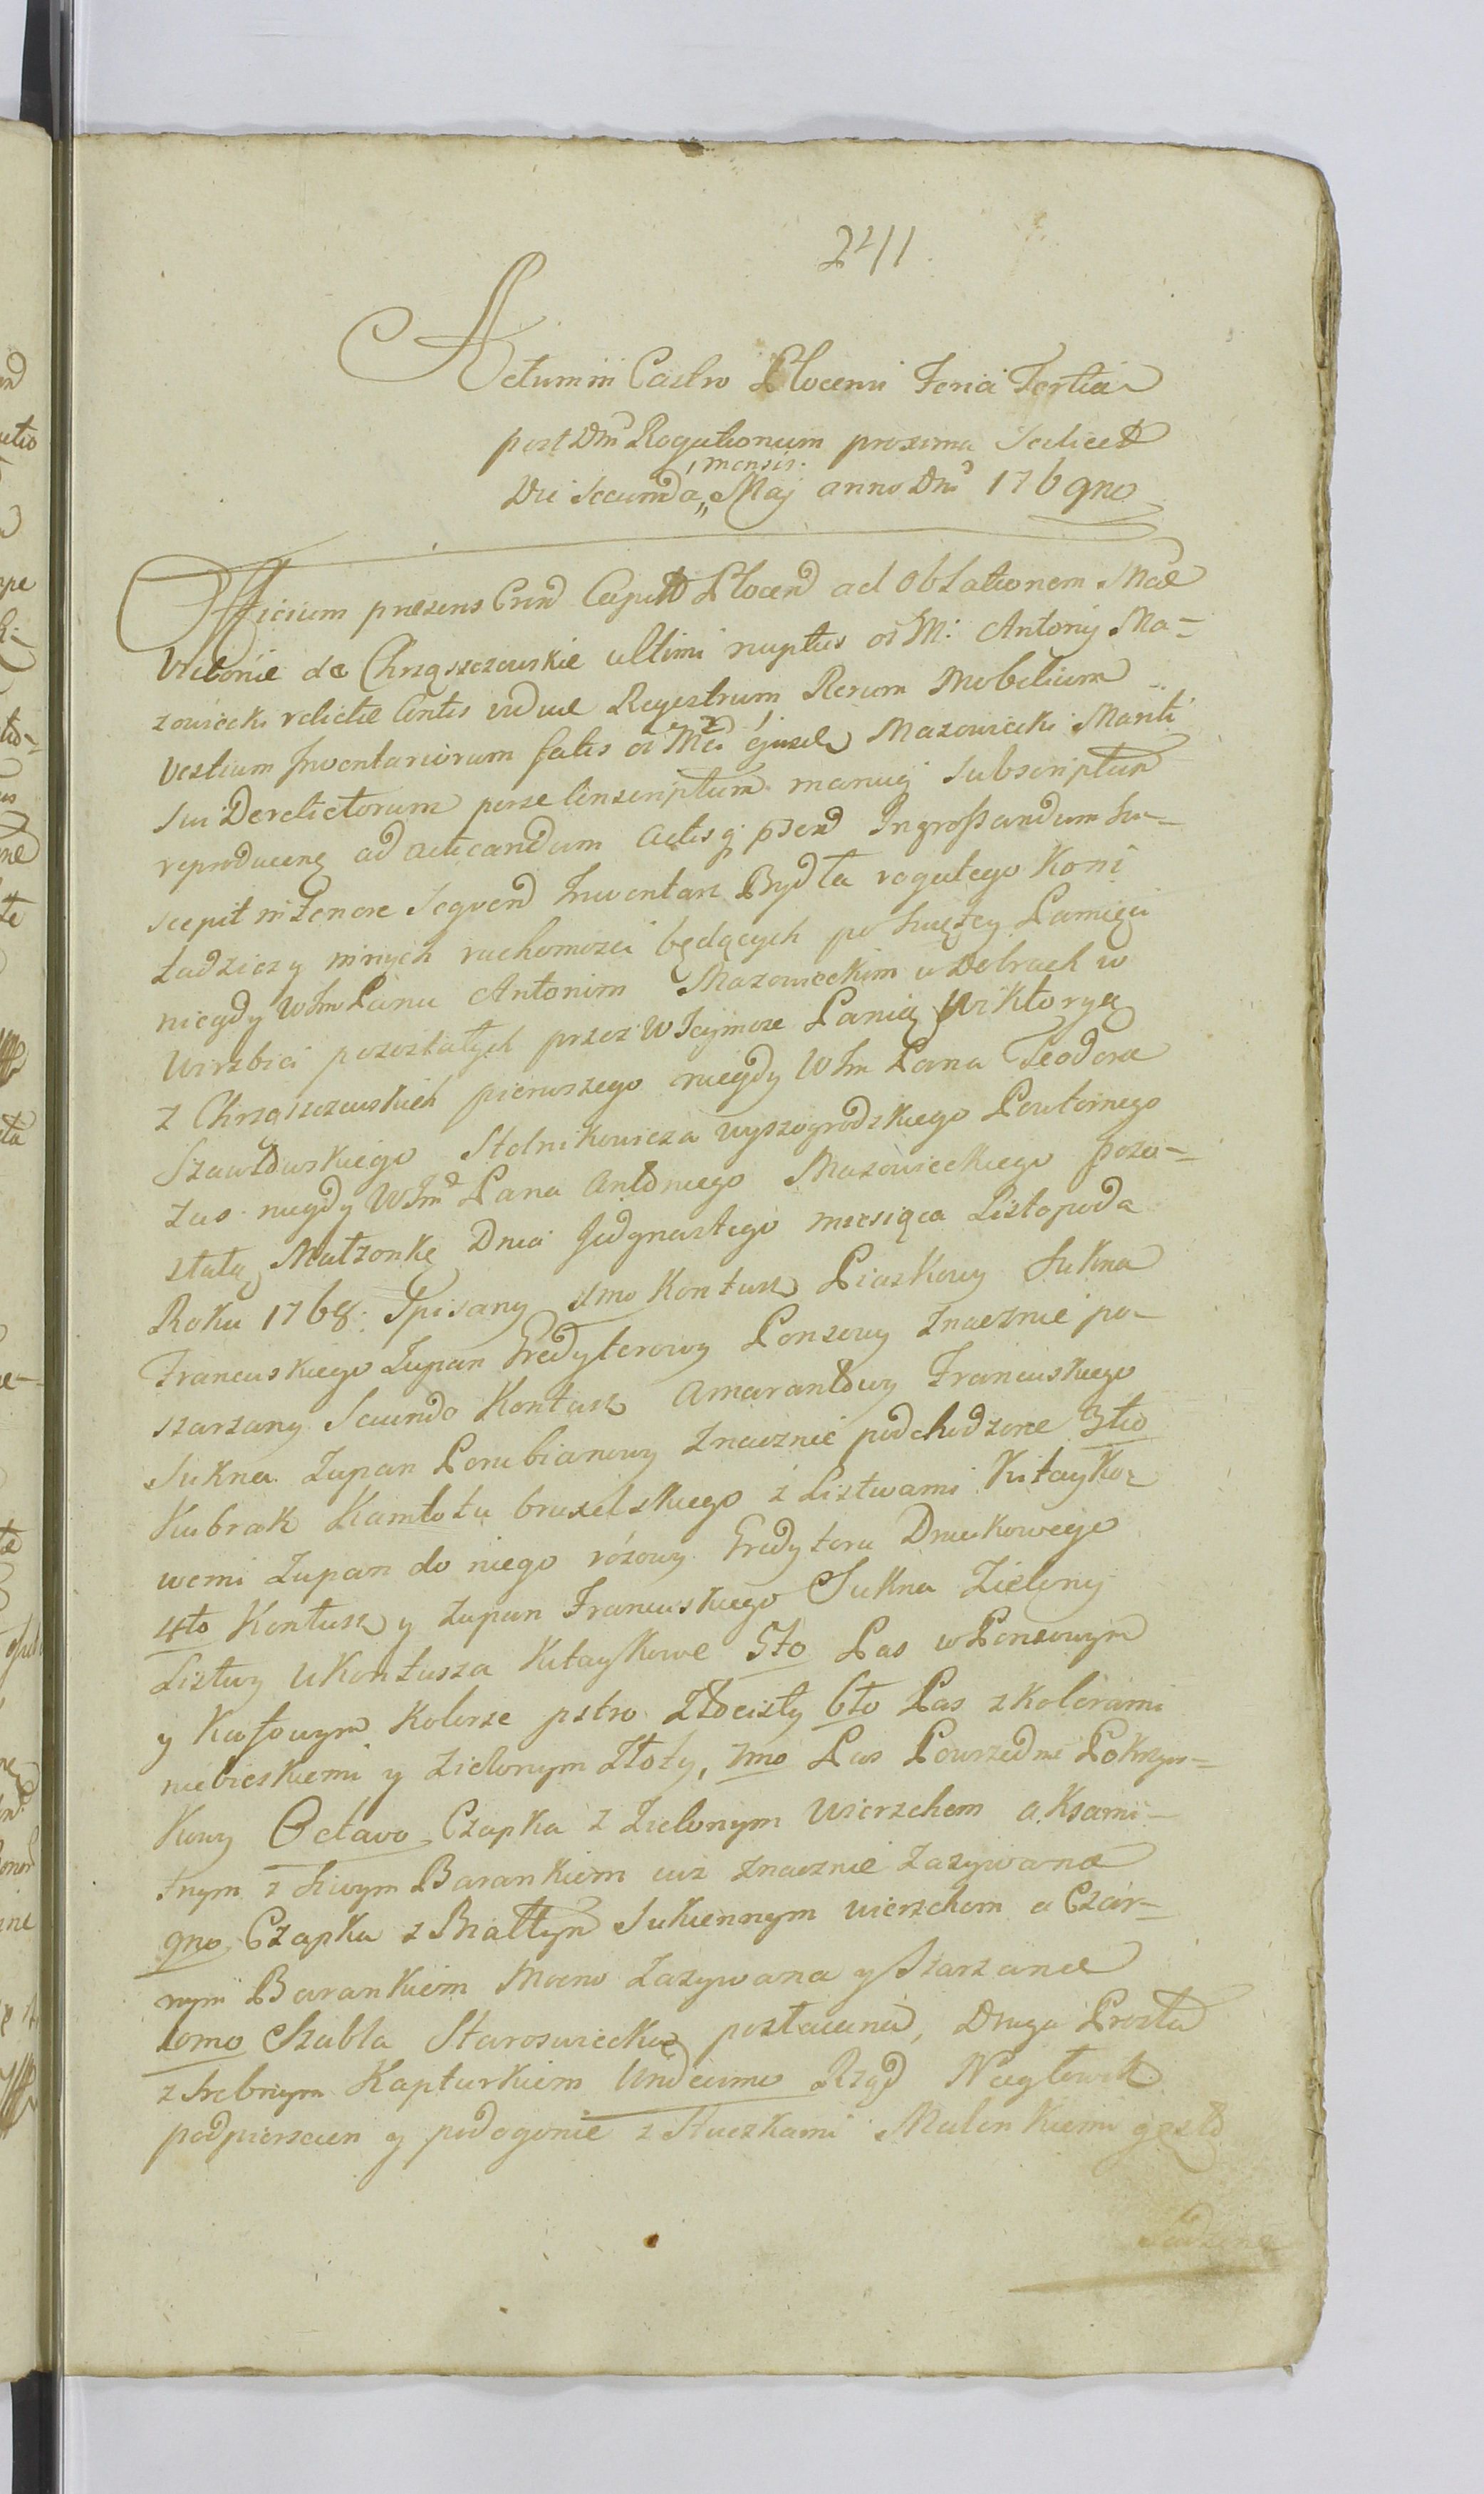 241
Actum in Castro Plocensi Feria Tertia
post Dm Rogationum proxima Scilicet
mensis
Die Secunda Maj anno Dni 1769no
Officium praesens Crens Capit Plocens ad oblationem Mae
Victoriae de Chrząszczewskie ultimi nuptus oi M: Antonij Ma-
zowiecki relictae Contis viduae Regestrum Rerum Mobilium
Vestium Inventariorum fatis oi Mci ejusd Mazowiecki Mariti
sui Derelictorum per se conscriptum manuq subscriptum
reproducenę ad acticandum actisq psend Ingrossandum su-
scepit in Tenore Sequend Inwentarz Bydła rogatego Koni
tudziesz y innych ruchomosci będących po swiętey Pamięci
niegdy WJm Panu Antonim Mazowieckim w Dobrach w
Wirzbici pozostałych przez W Jeymosc Panią Wiktoryą
z Chrząszczewskich pierwszego niegdy WJm Pana Teodora
Szawłowskiego Stolnikowicza wyszogrodzkiego Powtornego
zas niegdy WJm Pana Antoniego Mazowieckiego pozo-
stałą Małżonkę Dnia Jedynastego miesiąca Listopada
Roku 1768. Spisany 1mo Kontusz Piaskowy Sukna
Francuskiego Zupan Gredyterowy Ponsowy Znacznie po-
szarzany Secundo Kontusz Amarantowy Francuskiego
Sukna Zupan Porubianowy Znacznie podchodzone 3tio
Kubrak Kamlotu bruxelskiego z Listwami Kitayko-
wemi Zupan do niego różowy Gredytoru Drukowego
4to Kontusz y Zupan Francuskiego Sukna Zielony
Listwy u Kontusza Kitaykowe 5to Pas w Ponsowym
y Kafowym Kolorze pstro Złocisty 6to Pas z kolorami
niebieskiemi y zielonym Złoty, 7mo Pas Powszedni Pokrzyw-
kowy Octavo Czapka z Zielonym wierzchem aksami-
tnym z siwym Barankiem iusz znacznie zazywana
9no Czapka z Białłym Sukiennym wierzchem a Czar-
nym Barankiem Mocno Zazywana y Szarzana
10mo Szabla Staroswiecka pozłacana, Druga Prosta
z srebnym Kapturkiem Undecimo Rząd Nagłowek
podpiersien y podogonie z Sztuczkami Malenkiemi gęsto
Sadzone